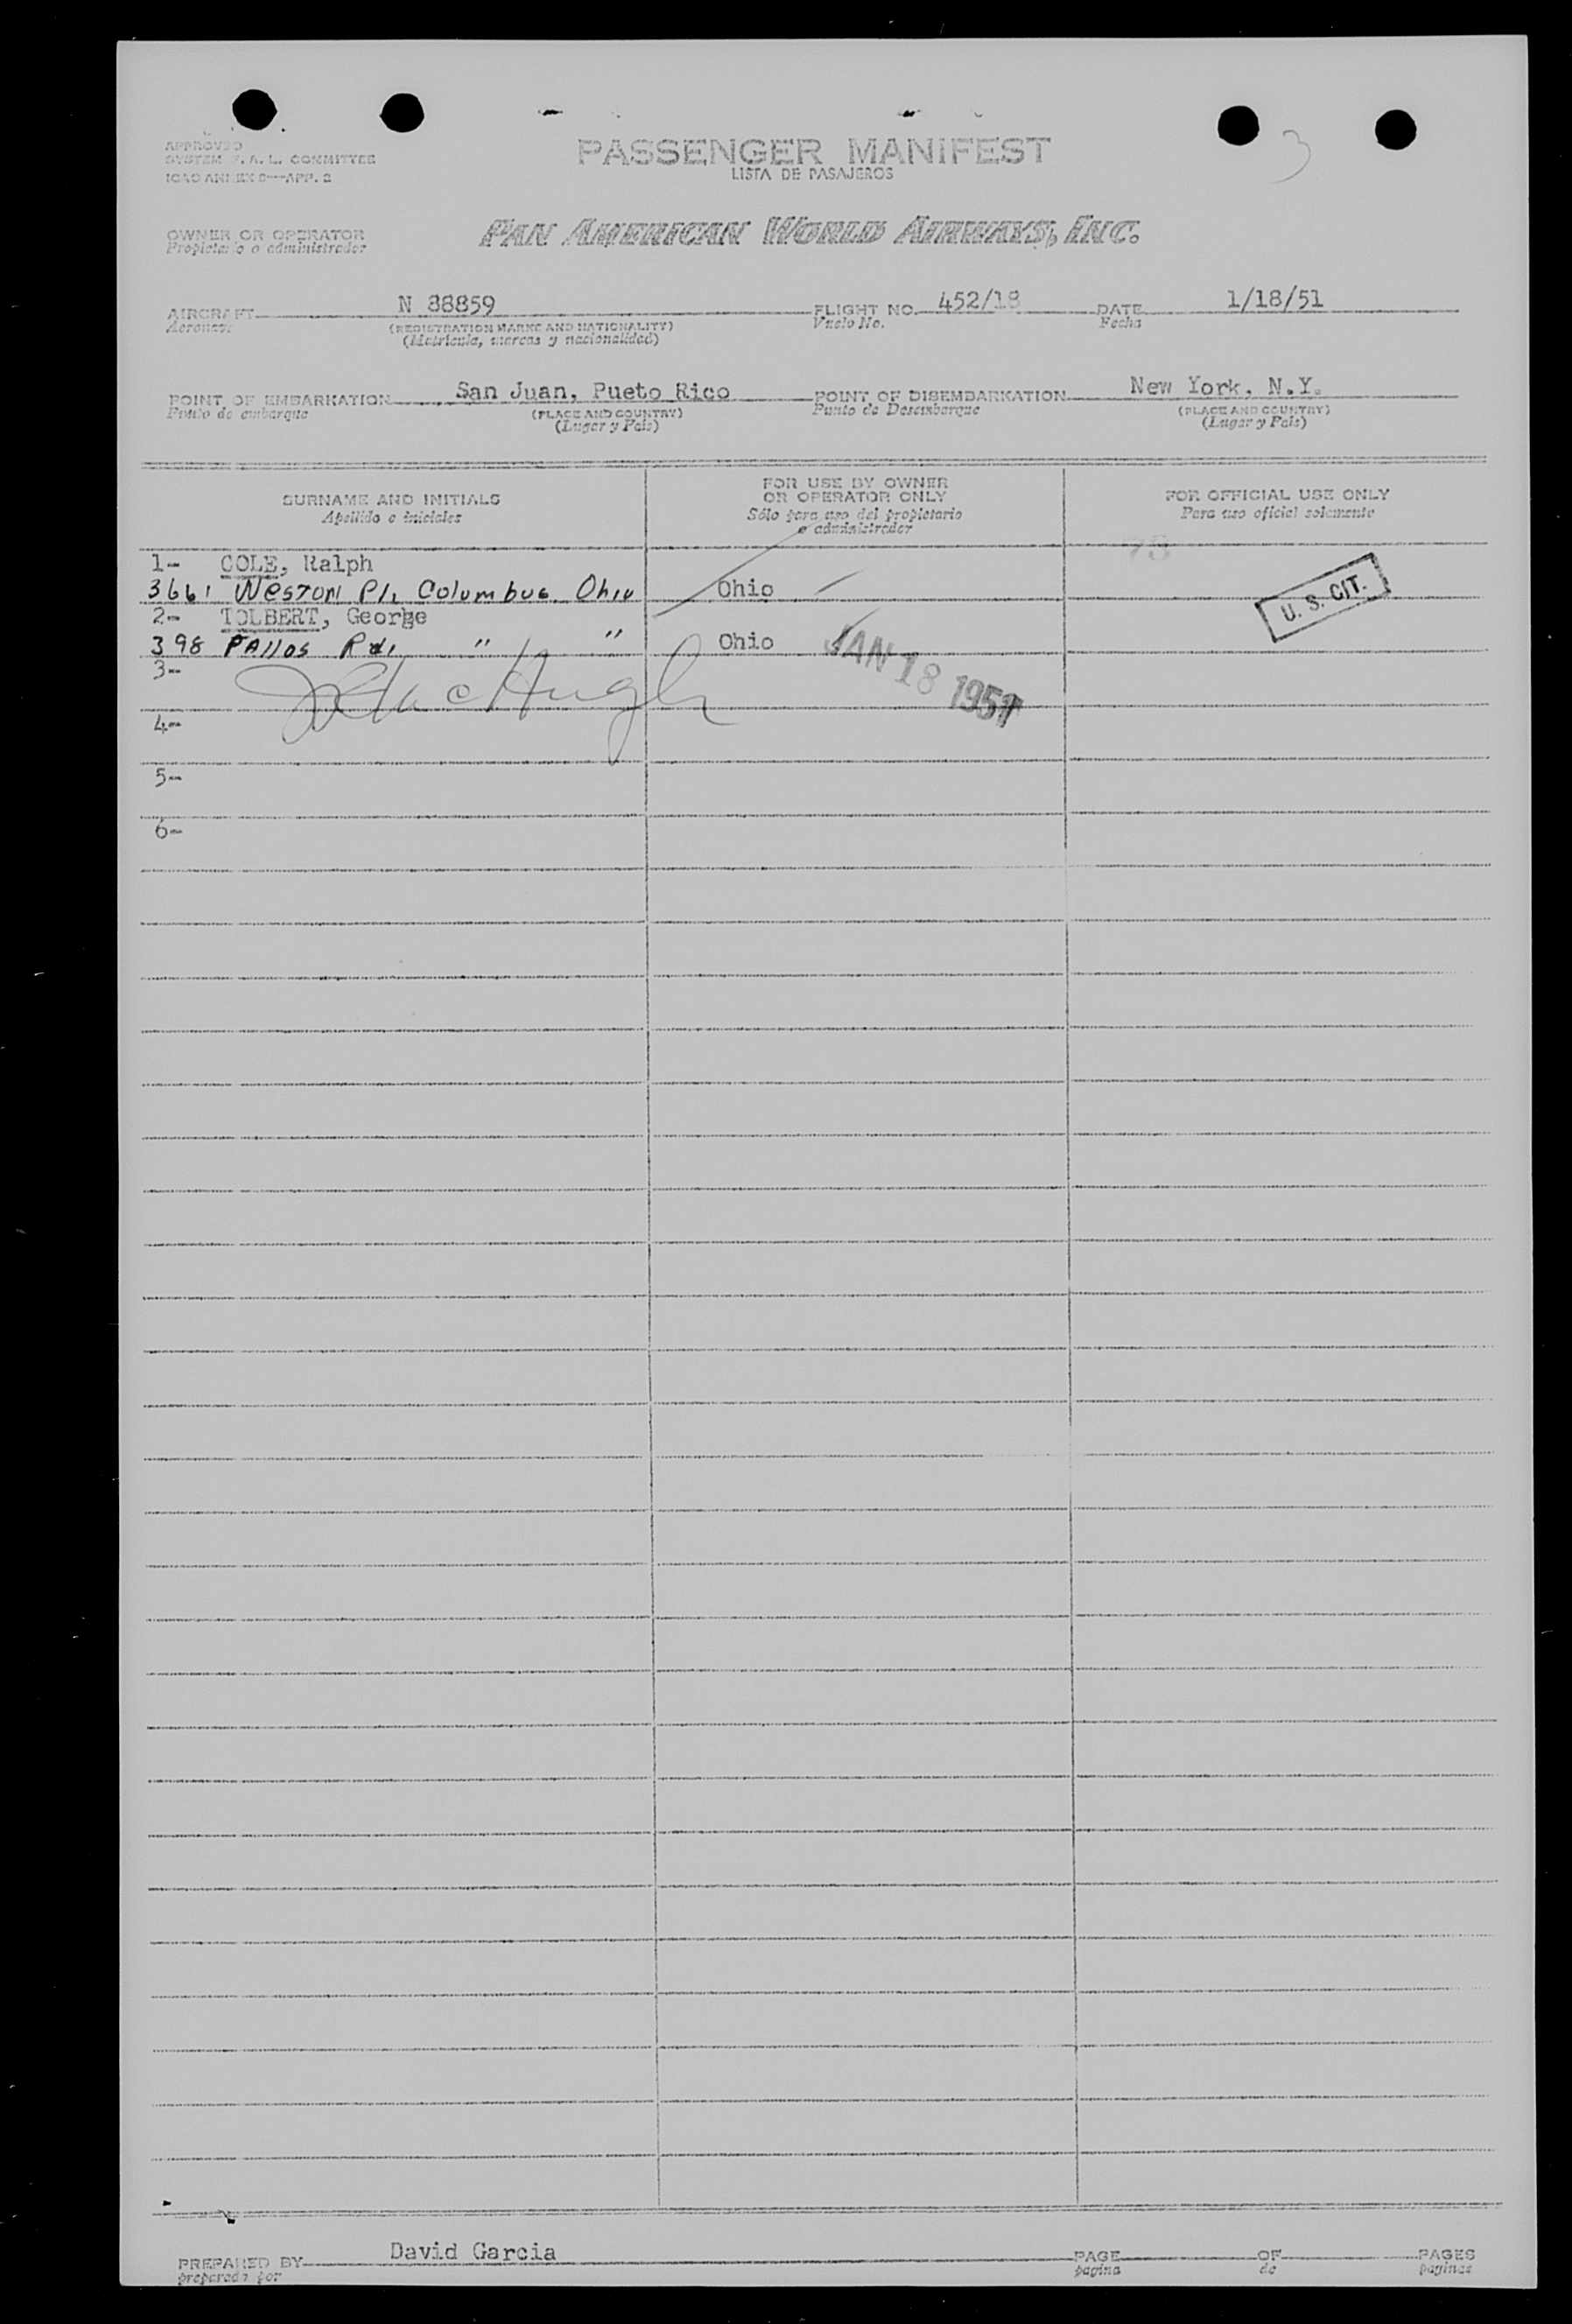 3
APPROVED
SYSTEM F. A. L. COMMITTEE
ICAO ANNEX 9—APP. 2
PASSENGER MANIFEST
LISTA DE PASAJEROS
OWNER OR OPERATOR
Propietario o administrador
PAN AMERICAN WORLD AIRWAYS, INC.
AIRCRAFT N 88859 FLIGHT NO. 452/18 DATE 1/18/51
Aeronave (REGISTRATION MARKS AND NATIONALITY) Vuelo No. Fecha
(Matrícula, marcas y nacionalidad)
POINT OF EMBARKATION San Juan, Pueto Rico POINT OF DISEMBARKATION New York, N.Y.
Punto de embarque (PLACE AND COUNTRY) Punto de Desembarque (PLACE AND COUNTRY)
(Lugar y País) (Lugar y País)
SURNAME AND INITIALS
Apellido e iniciales
FOR USE BY OWNER
OR OPERATOR ONLY
Sólo para uso del propietario
o administrador
FOR OFFICIAL USE ONLY
Para uso oficial solamente
1- COLE, Ralph
3661 Weston Pl, Columbus, Ohio Ohio U. S. CIT.
2- TOLBERT, George
398 Rd, " " Ohio
JAN 18 1951
3-
4-
5-
6-
PREPARED BY David Garcia PAGE OF PAGES
preparado por página de páginas